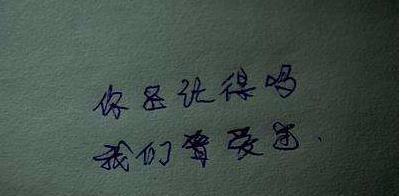 你还记得吗
我们曾爱过.